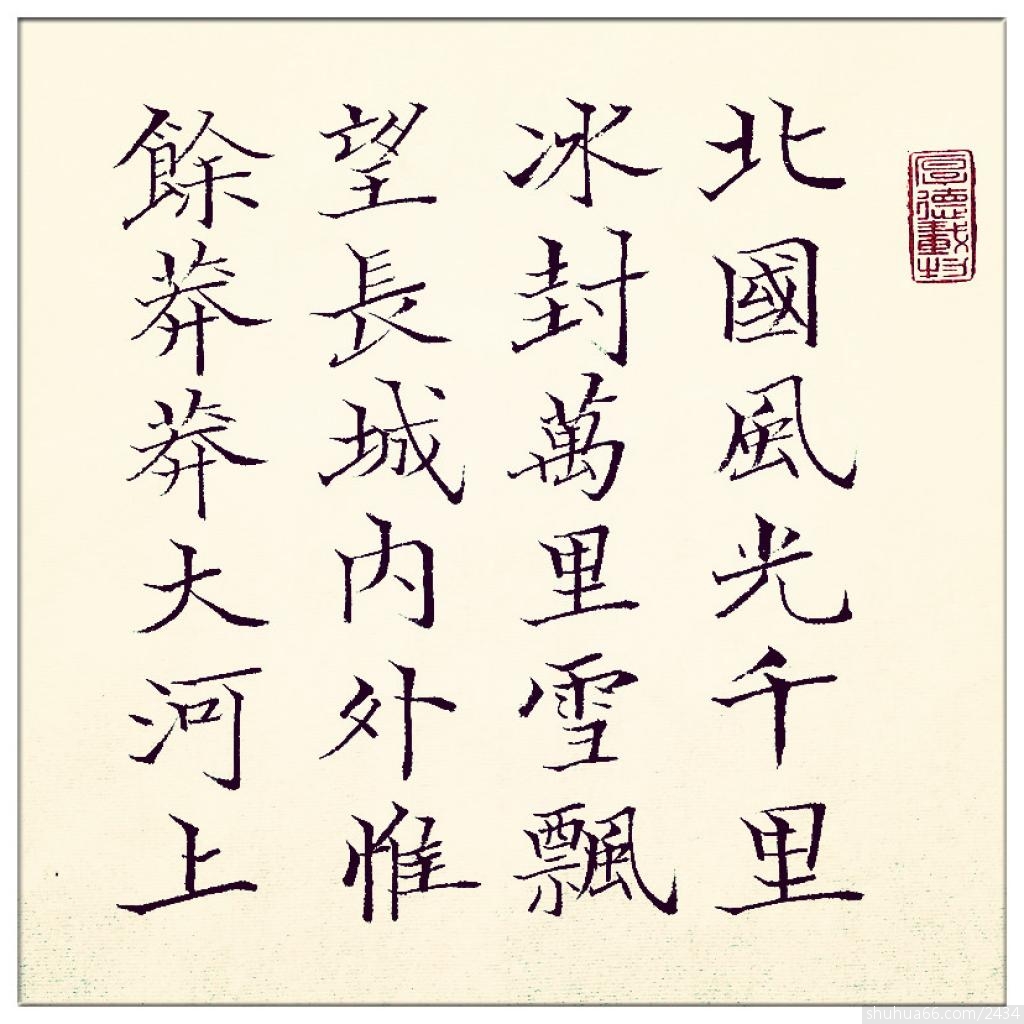 北國風光千里
冰封萬里雪飄
望長城內外惟
餘莽莽大河上
厚德載物
shuhua66.com/2434